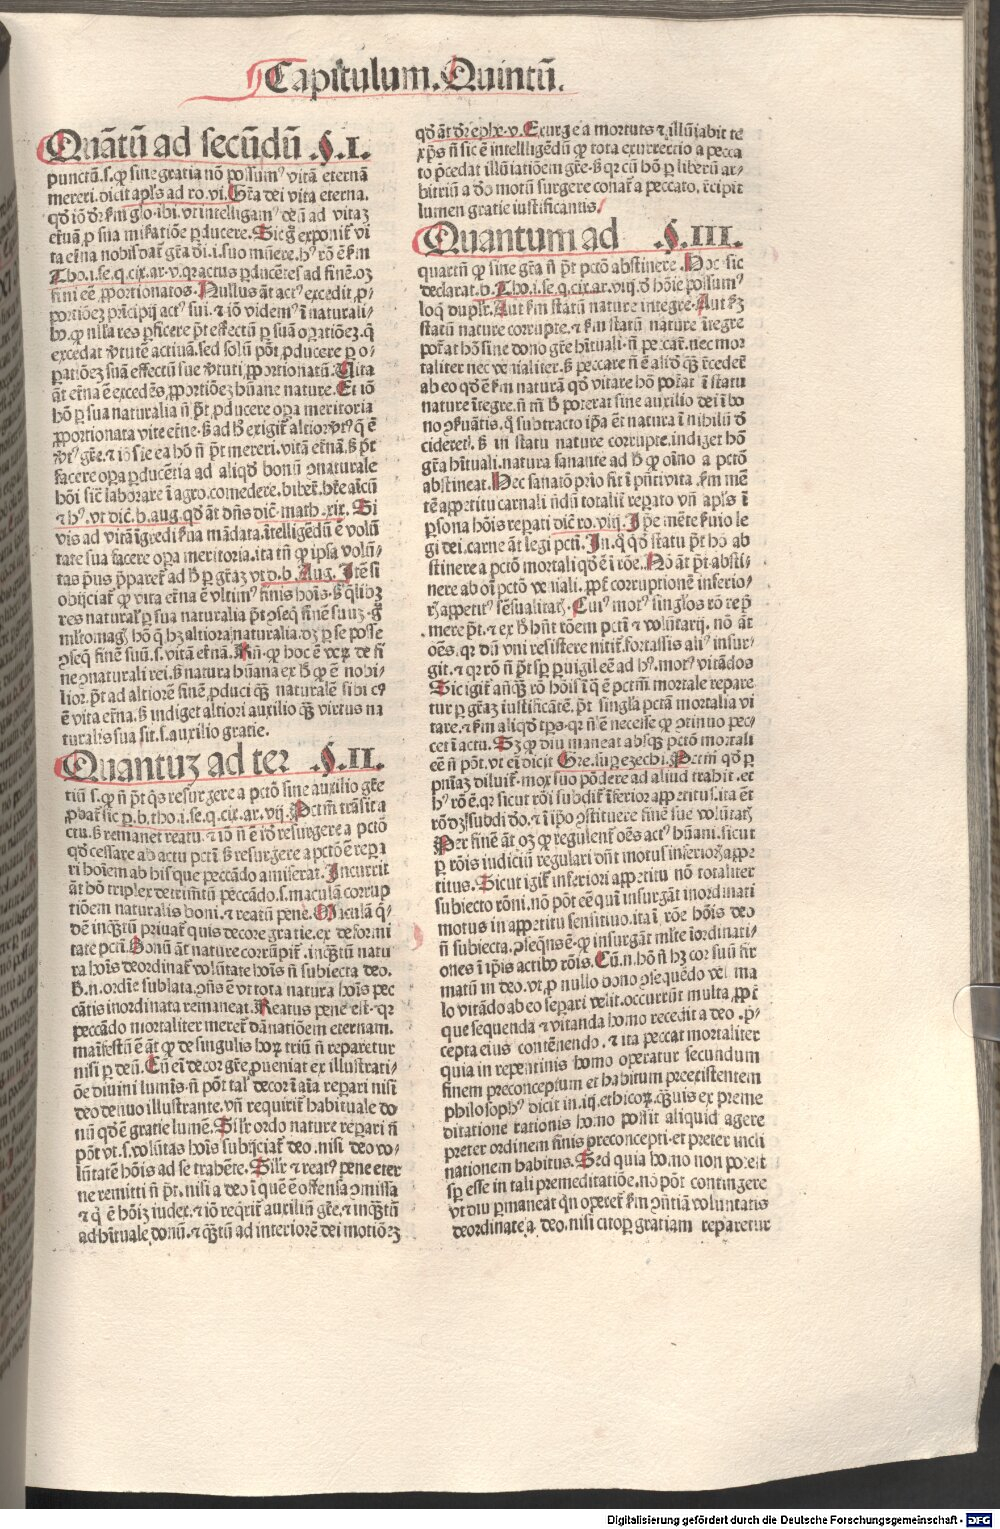 Capitulum. Quintū.
Quātū ad secūdū .§.I.
punctū.s.ꝙ sine gratia nō possumꝰ vitā eternā
mereri. dicit apl's ad ro.vi. Gr̄a dei vita eterna.
qd̄ iō dr̄ km̄ glo. ibi. vt intelligamꝰ deū ad vitaꝫ
et̄nā ꝑ sua mis̄atiōe ꝑducere. Sic g̊ exponit̄ vi
ta et̄na nobis dat̄ gr̄a dī .i. suo mūere. hꝰ rō ē km̄
Tho.i.se.q.cix.ar.v. qꝛ actus ꝑducētes ad finē. oꝫ
fini eē ꝓportionatos. Nullus āt actꝰ excedit ꝓ-
portiōeꝫ prīcipij actꝰ sui. ⁊ iō videmꝰ ī naturali-
bꝰ. ꝙ nulla res ꝑficere pt̄ effectū ꝑ suā oꝑatiōeꝫ. q̄
excedat v̓tutē actiuā. sed solū pōt ꝓducere ꝑ o-
ꝑatiōeꝫ suā effectū sue v̓tuti ꝓportionatū. Uita
āt et̄na ē excedēs ꝓportiōeꝫ hūane nature. Et iō
hō ꝑ sua naturalia n̄ pt̄ ꝓducere oꝑa meritoria
ꝓportionata vite et̄ne. sꝫ ad h̄ exigit̄ altior v̓tꝰ q̄ ē
v̓tꝰ gr̄e. ⁊ iō sic ea hō n̄ pt̄ mereri. vitā et̄nā. sꝫ pt̄
facere oꝑa ꝑducētia ad aliqd̄ bonū ↄnaturale
hōi sic̄ laborare ī agro. comedere. bibere. hr̄e aīcū
⁊ hꝰ. vt dic̄. b. aug. qd̄ āt dn̄s dic̄. math. xix. Si
vis ad vitā īgredi s̄ua mādata. ītelligēdū ē volū
tate sua facere oꝑa meritoria. ita tn̄ ꝙ ipsa volū-
tas pꝰus p̄paret̄ ad h̄ ꝑ gr̄aꝫ vt d. b. Aug. Itē si
obijciat̄ ꝙ vita et̄na ē vltimꝰ finis hoīs. sꝫ q̄libꝫ
res natural' ꝑ sua naturalia pt̄ ↄseq̄ finē suuꝫ. g̊
ml'tomagꝭ hō q̄ hꝫ altiora naturalia. oꝫ ꝑ se posse
ↄseq̄ finē suū. s. vitā et̄nā. Rn̄. ꝙ hoc ē veꝝ de fi
ne ↄnaturali rei. sꝫ natura hūana ex h̄ ꝙ ē nobi-
lior. pt̄ ad altiorē finē ꝓduci qꝫ naturalē sibi cꝰ
ē vita et̄na. sꝫ indiget altiori auxilio qꝫ virtus na
turalis sua sit. s. auxilio gratie.
Quantuꝫ ad ter .§.II.
tiū s. ꝙ n̄ pt̄ q̄s resurgere a pctō sine auxilio gr̄e
ꝓbat̄ sic ꝑ. b. tho. i. se. q. cix. ar. vij. Pctm̄ trāsit a
ctu. sꝫ remanet reatu. ⁊ iō n̄ ē id̄ resurgere a pctō
qd̄ cessare ab actu pctī. sꝫ resurgere a pctō ē reꝑa
ri hoīem ab his que peccādo amiserat. Incurrit
āt hō triplex detrimētū peccādo. s. maculā corrup
tiōem naturalis boni. ⁊ reatū pene. Maculā q̄-
dē inqꝫtū priuat̄ quis decore gratie. ex deformi
tate pctī. Bonū āt nature corrūpit̄. inqꝫtū natu
ra hoīs deordinat̄ volūtate hoīs n̄ subiecta deo.
h̄. n. ordīe sublata. ↄn̄s ē vt tota natura hoīs pec
cātis inordinata remaneat. Reatus pene est. qꝛ
peccādo mortaliter meret̄ dānatiōem eternam.
maīfestū ē āt ꝙ de singulis hoꝝ triū n̄ reparetur
nisi ꝑ deū. Cū eī decor gr̄e ꝓueniat ex illustrati-
ōe diuini lumīs. n̄ pōt tal' decor ī aīa reꝑari nisi
deo denuo illustrante. vn̄ requirit̄ habituale do
nū qd̄ ē gratie lumē. Sil'r ordo nature reꝑari n̄
pōt vt. s. volūtas hoīs subijciat̄ deo. nisi deo vo-
lūtatē hoīs ad se trahēte. Sil'r ⁊ reatꝰ pene eter
ne remitti n̄ pt̄. nisi a deo ī quē ē offensa ↄmissa
⁊ q̄ ē hōiꝫ iudex. ⁊ iō reqrit̄ auxiliū gr̄e. ⁊ inqꝫtū
ad hītuale donū. ⁊ qꝫtū ad interiorē dei motiōeꝫ
qd̄ āt dr̄ ephe. v. Exurge a mortuis ⁊ illūīabit te
xp̄s n̄ sic ē intelligēdū ꝙ tota exurrectio a pecca
to p̄cedat illūīatiōem gr̄e. sꝫ qꝛ cū hō ꝑ liberū ar-
bitriū a dō motū surgere conat̄ a peccato, r̄cipit
lumen gratie iustificantis.
Quantum ad .§.III.
quartū ꝙ sine gr̄a n̄ pt̄ pctō abstinere. Hoc sic
declarat. b. Tho. i. se. q. cix. ar. viij. d̄ hōie possumꝰ
loq̄ dupl'r. Aut km̄ statū nature integre. Aut km̄
statū nature corrupte. ⁊ km̄ statū nature ītegre
poterat hō sine dono gr̄e hītuali. n̄ peccare. nec mor
taliter nec venialiter. sꝫ peccare n̄ ē aliō qꝫ r̄cedere
ab eo qd̄ ē km̄ naturā qd̄ vitare hō poterat ī statu
nature ītegre. n̄ tn̄ h̄ poterat sine auxilio dei ī bo
no ↄs̄uātis. q̄ subtracto ip̄a ēt natura ī nihilū d̄
cideret. sꝫ in statu nature corrupte. indiget hō
gr̄a hītuali. natura sanante ad h̄ ꝙ oīno a pctō
abstineat. Hec sanatō prīo fit ī pn̄ti vita. km̄ mē
tē appetitu carnali nōdū totalit̄ reꝑato vn̄ apl's ī
ꝑsona hōis reꝑati dic̄ ro. viij. Ip̄e mēte s̄uio le
gi dei. carne āt legi pctī. In. q̄ qd̄ statu pt̄ hō ab
stinere a pctō mortali qd̄ ē ī rōe. Nō āt pt̄ absti-
nere ab oī pctō veniali. ꝓpt̄ corruptionē inferio-
rꝭ appetitꝰ sēsualitatꝭ. Cuiꝰ motꝰ singl'os rō repͥ
mere pt̄. ⁊ ex h̄ hn̄t rōem pctī ⁊ volūtarij. nō āt
oēs. qꝛ dū vni resistere nitit̄. fortassis aliꝰ insur-
git. ⁊ qꝛ rō n̄ pt̄ sꝑ ꝑuigil eē ad hꝰ. motꝰ vitādos
Sic igit̄ anq̄ꝫ rō hōis ī q̄ ē pctm̄ mortale repare
tur ꝑ gr̄aꝫ iustificātē. pt̄ singl'a pctā mortalia vi
tare. ⁊ km̄ aliqd̄ tp̄s. qꝛ n̄ ē necesse ꝙ ↄtinuo pec-
cet ī actu. Sꝫ ꝙ diu maneat absqꝫ pctō mortali
eē n̄ pōt. vt eī dicit Gre. suꝑ ezechi. Pctm̄ qd̄ ꝑ
pn̄iaꝫ diluit̄. mox suo pōdere ad aliud trahit. et
hꝰ rō ē. qꝛ sicut rōi subdit̄ īferior appetitus. ita ēt
rō dꝫ subdi dō. ⁊ ī ip̄o ↄstituere finē sue volūtatꝭ
Per finē āt oꝫ ꝙ regulent̄ oēs actꝰ hūani. sicut
ꝑ rōis iudiciū regulari dn̄t motus inferiorꝭ appe
titus. Sicut igit̄ inferiori appetitu nō totaliter
subiecto rōni. nō pōt eē quī insurgāt inordinati
motus in appetitu sensitiuo. ita ī rōe hōis deo
n̄ subiecta. ↄseqn̄s ē. ꝙ insurgāt ml'te iordinati-
ones ī ip̄is actibꝰ rōis. Cū. n. hō n̄ hꝫ cor suū fir
matū in deo. vt ꝑ nullo bono ↄsequēdo vel ma
lo vitādo ab eo seꝑari velit. occurrūt multa ꝓpt̄
que sequenda ⁊ vitanda homo recedit a deo. p̄-
cepta eius contēnendo. ⁊ ita peccat mortaliter
quia in repentinis homo operatur secundum
finem preconceptum et habitum preexistentem
philosophꝰ dicit in. iij. ethicoꝝ. qꝫuis ex preme
ditatione rationis homo possit aliquid agere
preter ordinem finis preconcepti. et preter incli
nationem habitus. Sed quia homo non potest
sꝑ esse in tali premeditatiōe. nō pōt contingere
vt diu ꝑmaneat qn̄ operet̄ km̄ ↄn̄tiā voluntatis
deordinate a deo. nisi cito ꝑ gratiam reparetur
Digitalisierung gefördert durch die Deutsche Forschungsgemeinschaft - DFG